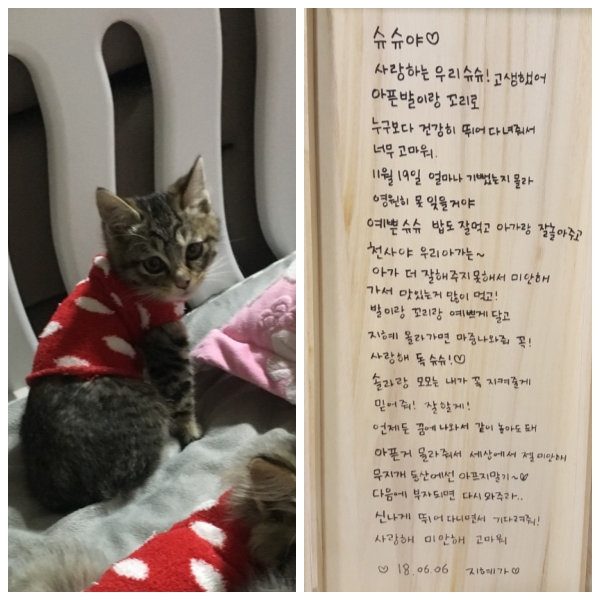 슈슈야♡
사랑하는 우리 슈슈! 고생했어
아픈발이랑 꼬리로
누구보다 건강히 뛰어 다녀줘서
너무 고마워.
11월 19일 얼마나 기뻤는지 몰라
영원히 못 잊을거야
예쁜 슈슈 밥도 잘먹고 아가랑 잘놀아주고
천사야 우리아가는~
아가 더 잘해주지못해서 미안해
가서 맛있는거 많이 먹고!
발이랑 꼬리랑 예쁘게 달고
지혜 올라가면 마중나와줘 꼭!
사랑해 똑 슈슈!♡
솔라랑 모모는 내가 꼭 지켜줄게
믿어줘! 잘할게!
언제든 꿈에 나와서 같이 놀아도 돼
아픈거 몰라줘서 세상에서 젤 미안해
무지개 동산에선 아프지말기~♡
다음에 부자되면 다시 와주라..
신나게 뛰어 다니면서 기다려줘!
사랑해 미안해 고마워
♡ 18.06.06 지혜가♡